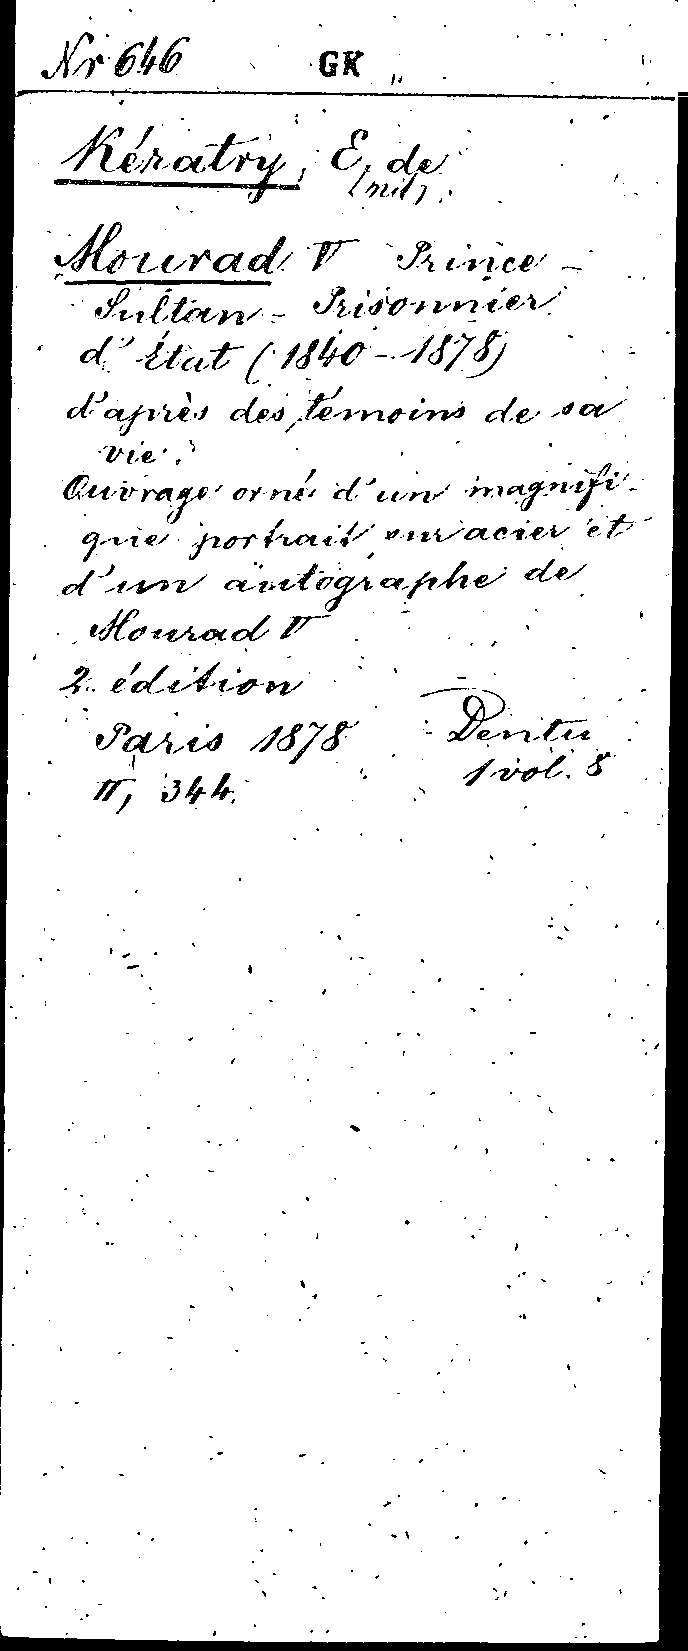 Nr 646 GK „
Kératry, E, de
(mit)
Mourad V Prince -
Sultan - Prisonnier
d'État (1840 - 1878)
d'après des témoins de sa
vie.
Ouvrage orné d'un magnifi-
que portrait sur acier et
d'un autographe de
Mourad V
2. édition
Paris 1878 Dentu
II, 344. 1 vol. 8